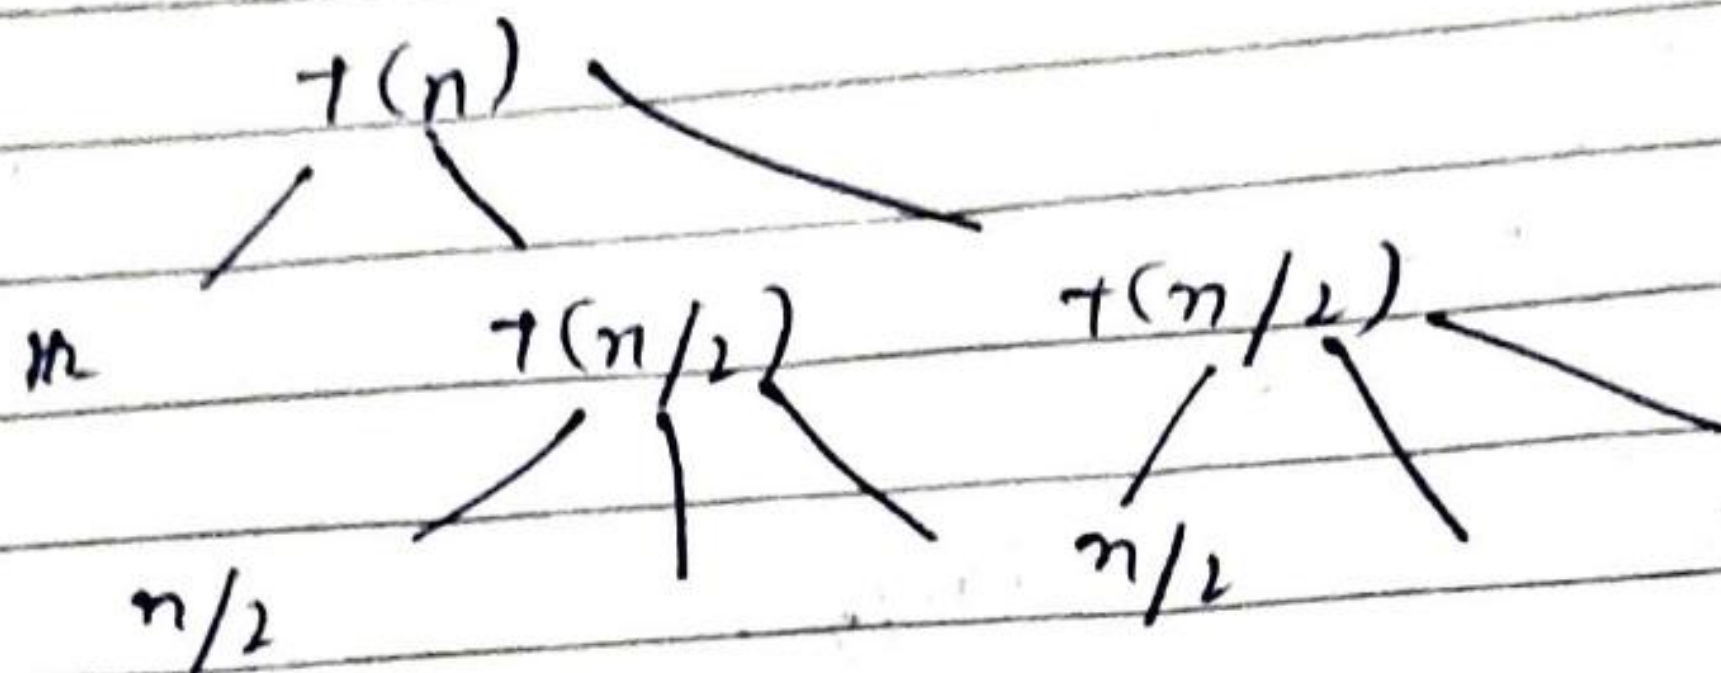 T(n)
n T(n/2) T(n/2)
n/2 n/2